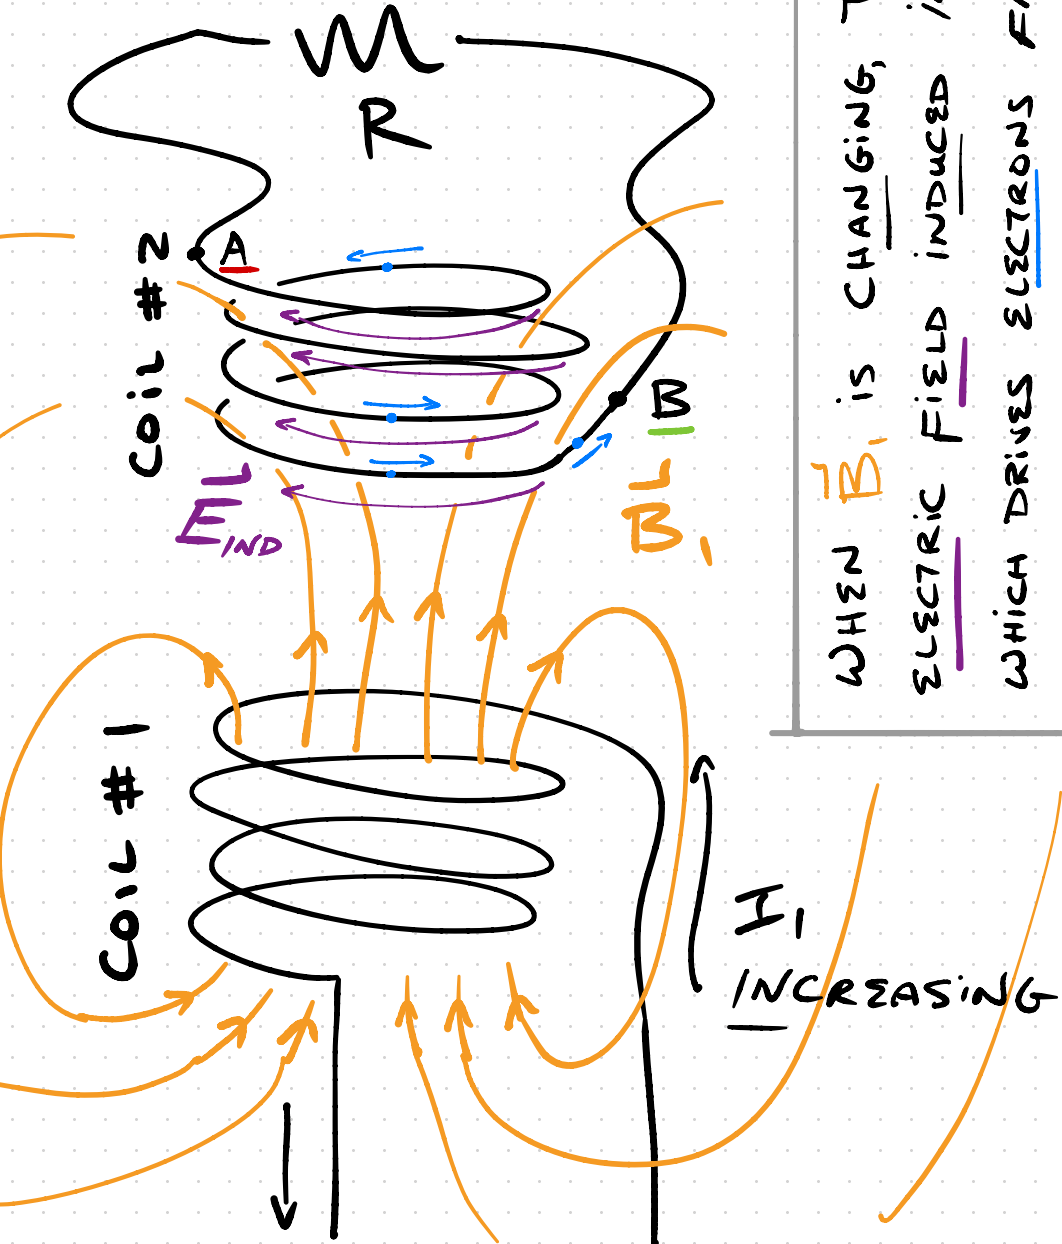 R
COIL # 2
A
B
E IND
B1
COIL # 1
I1
INCREASING
WHEN B1 IS CHANGING,
ELECTRIC FIELD INDUCED
WHICH DRIVES ELECTRONS